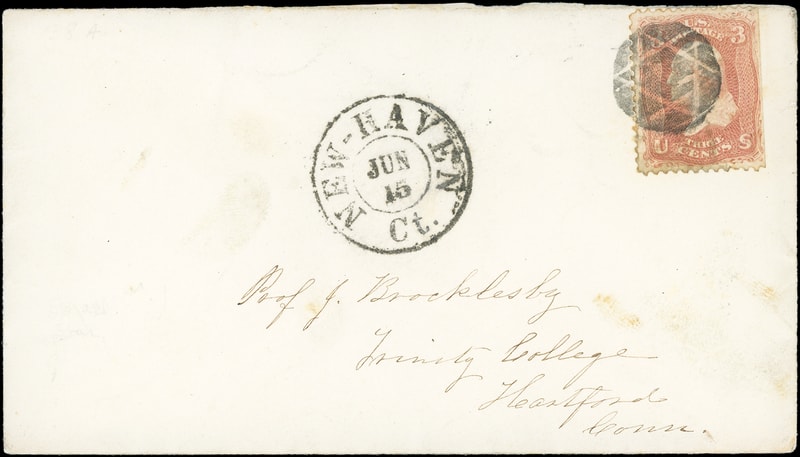 3
U S
CENTS
NEW-HAVEN
JUN
15
Ct.
Prof J. Brocklesby
Trinity College
Hartford
Conn.